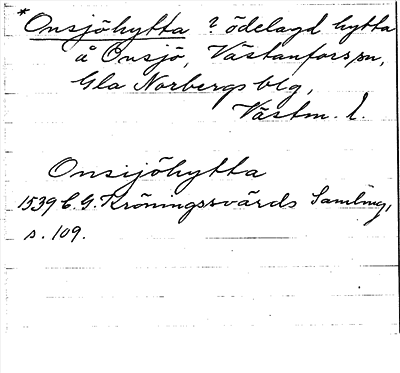 *Onsjöhytta ? ödelagd hytta
å Onsjö, Västanfors sn,
Gla Norbergs blg,
Västm. l.
Onsijöhytta
1539 C. G. Kröningssvärds Samling,
s. 109.